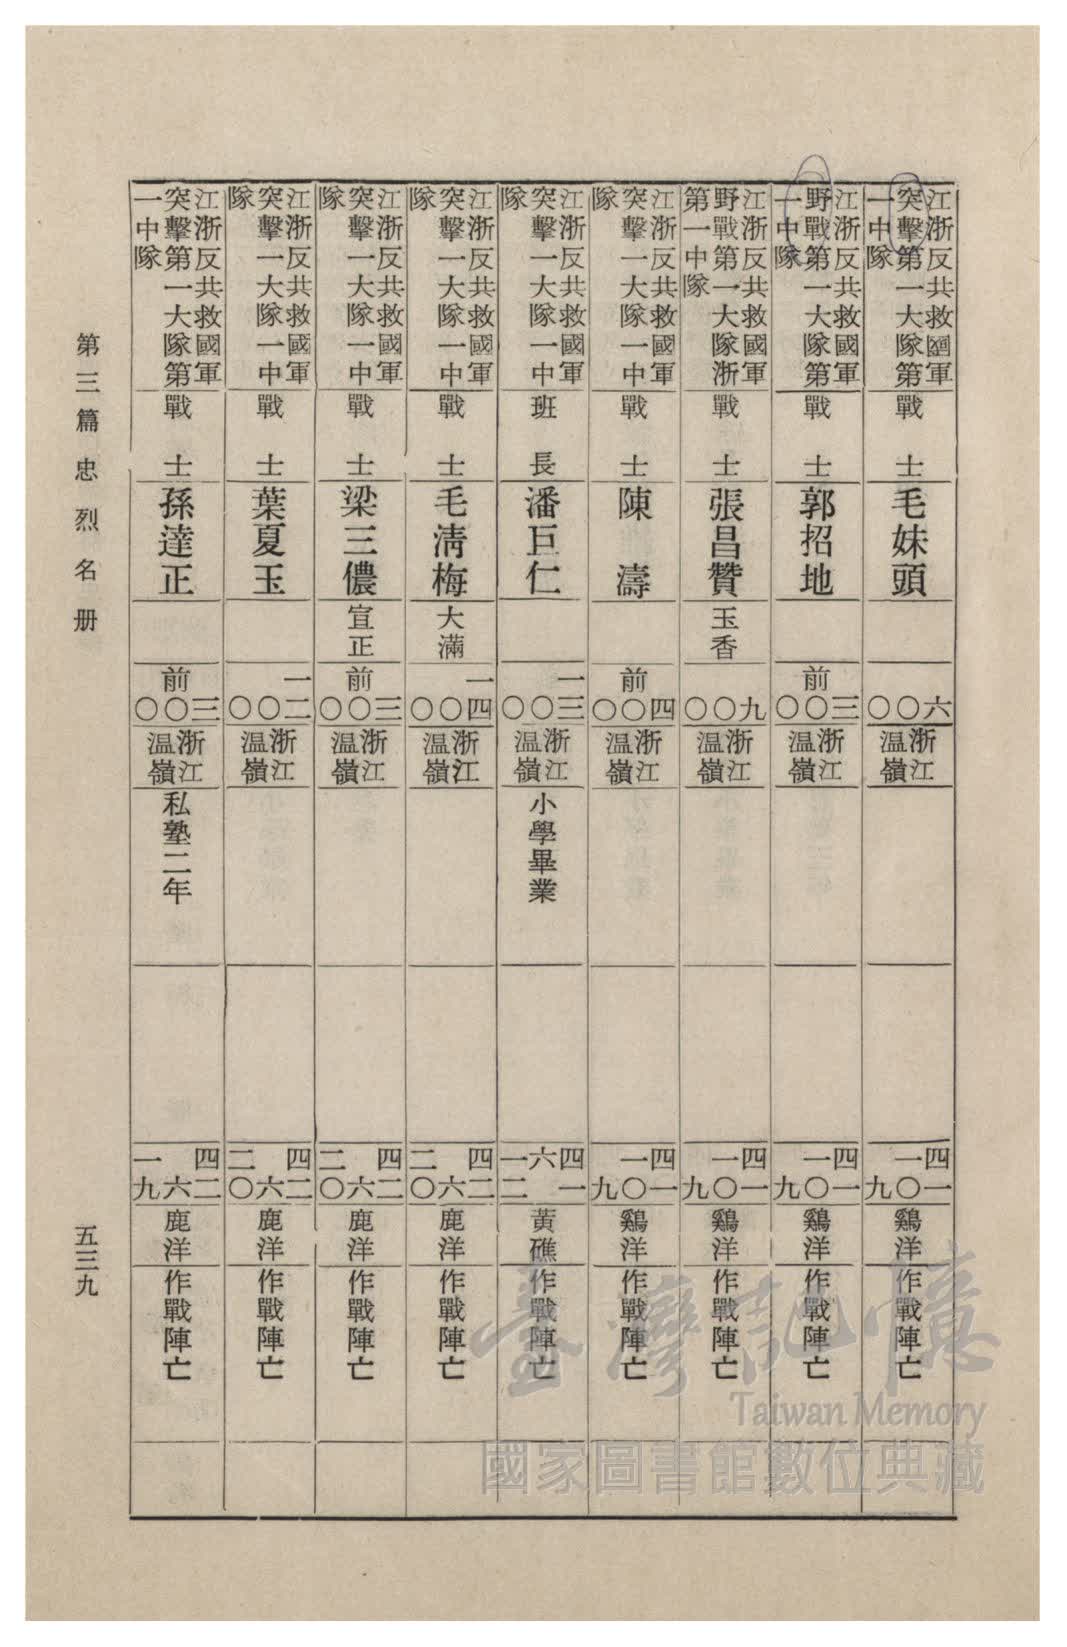 江浙反共救國軍
突擊第一大隊第
一中隊
戰士
毛妹頭
六〇〇
浙江
温嶺
四一
一〇九
鷄洋
作戰陣亡
江浙反共救國軍
野戰第一大隊第
一中隊
戰士
郭招地
前三〇〇
浙江
温嶺
四一
一〇九
鷄洋
作戰陣亡
江浙反共救國軍
野戰第一大隊浙
第一中隊
戰士
張昌贊
玉香
九〇〇
浙江
温嶺
四一
一〇九
鷄洋
作戰陣亡
江浙反共救國軍
突擊一大隊一中
隊
戰士
陳濤
前四〇〇
浙江
温嶺
四一
一〇九
鷄洋
作戰陣亡
江浙反共救國軍
突擊一大隊一中
隊
班長
潘巨仁
一三〇〇
浙江
温嶺
小學畢業
四一
六
一二
黃礁
作戰陣亡
江浙反共救國軍
突擊一大隊一中
隊
戰士
毛淸梅
大滿
一四〇〇
浙江
温嶺
四二
六
二〇
鹿洋
作戰陣亡
江浙反共救國軍
突擊一大隊一中
隊
戰士
梁三儂
宣正
前三〇〇
浙江
温嶺
四二
六
二〇
鹿洋
作戰陣亡
江浙反共救國軍
突擊一大隊一中
隊
戰士
葉夏玉
一二〇〇
浙江
温嶺
四二
六
二〇
鹿洋
作戰陣亡
江浙反共救國軍
突擊第一大隊第
一中隊
戰士
孫達正
前三〇〇
浙江
温嶺
私塾二年
四二
六
一九
鹿洋
作戰陣亡
第三篇 忠烈名册
五三九
臺灣記憶
Taiwan Memory
國家圖書館數位典藏